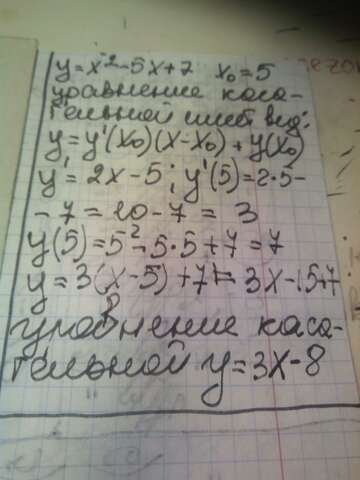 y=x²-5x+7 x₀=5
уравнение каса-
тельной имеет вид:
y=y'(x₀)(x-x₀)+y(x₀)
y'=2x-5; y'(5)=2·5-
-7=10-7=3
y(5)=5²-5·5+7=7
y=3(x-5)+7=3x-15+7
уравнение каса-
тельной y=3x-8